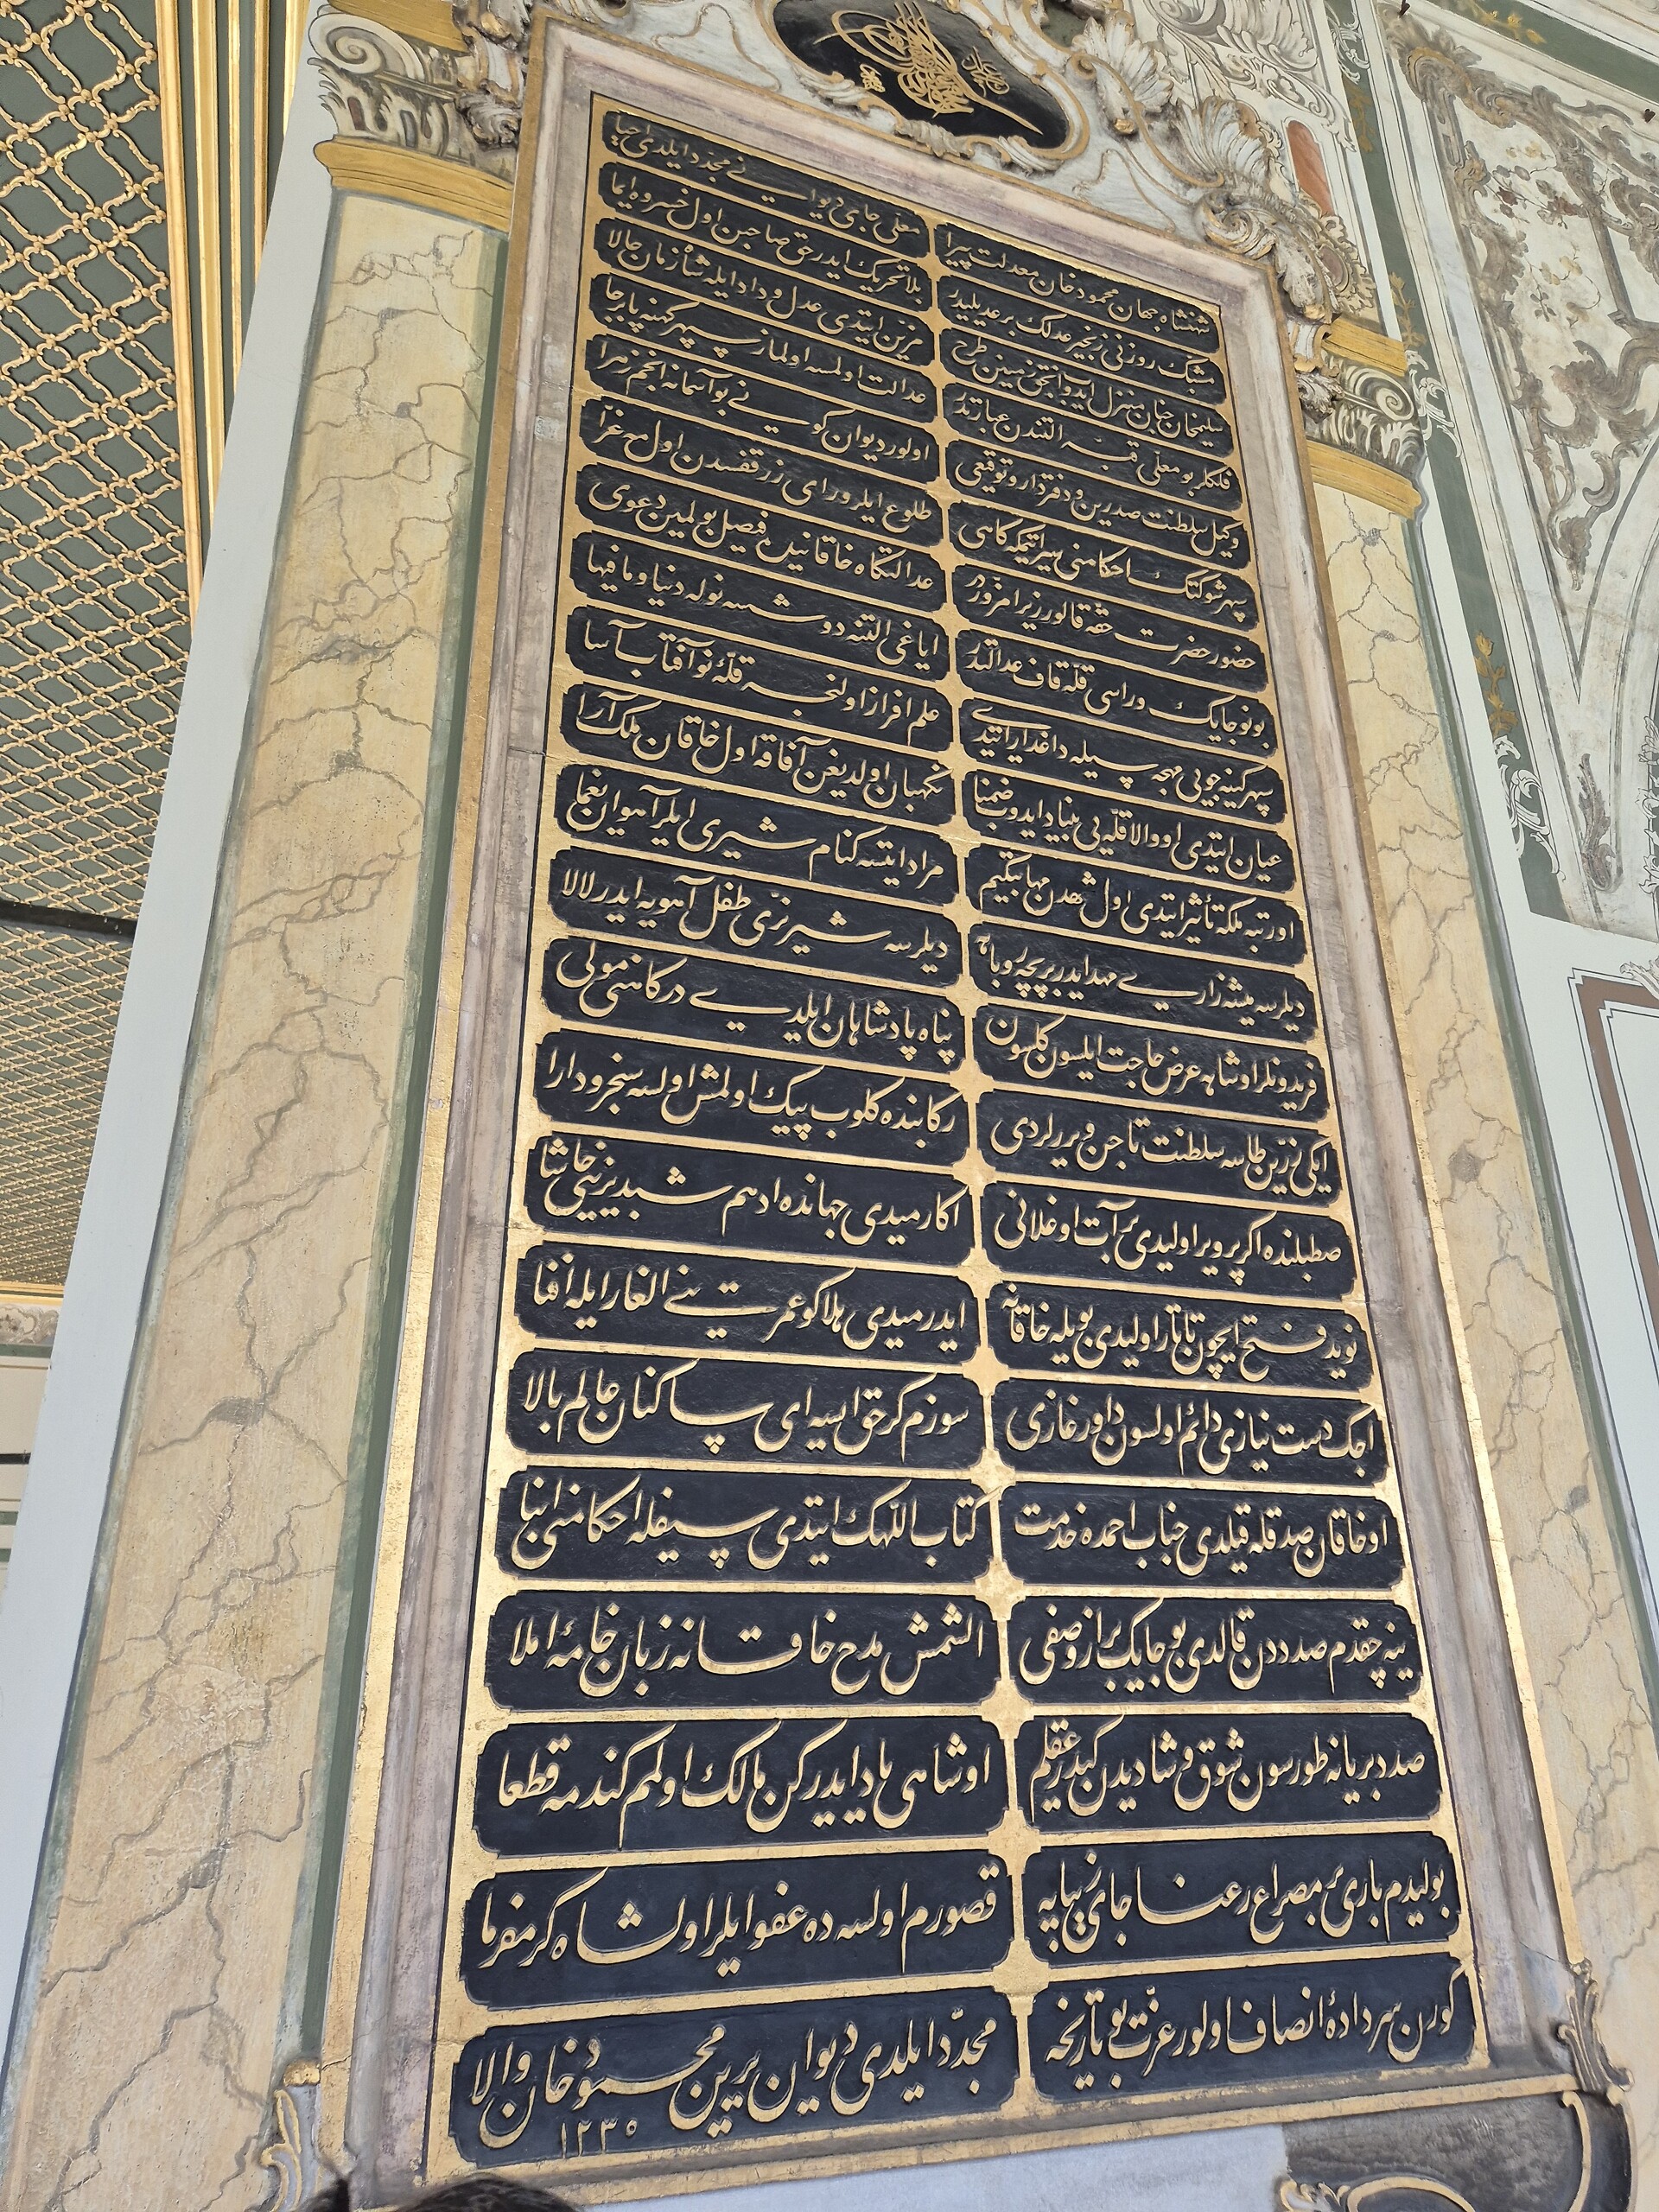 شهنشاه جهان محمود خان معدلت پیرا
معلی جای دیوانی نی مجددا ایلدی احیا
مشبك روزنی زنجیر عدلك بر عدیلیدر
بلا تحریك ایدر حق صاحبن اول خسروه ایما
سلیمان جنان منزل ایدوانجق زمینن طرح
مزین ایتدی عدل و داد ایله شاه زمان حالا
فلکلر بو معلی قبه التندن عبارتدر
عدالت اولمسه اولماز سپهر کهنه پابرجا
وکیل سلطنت صدرین و دفتردار و توقیعی
اولور دیوان کونی بو آسمانه انجم زهرا
سپهر شوکتك احکامنی سیر ایتمکه کاهی
طلوع ایلر ورای زر قفسدن اول مه غرا
حضور حضرت حقه قالور زیرا مزور در
عدالتکاه خاقانیده فیصل بولمین دعوی
بو نوجایك وراسی قله قاف عدالتدر
ایاغی التنه دوشسه نوله دنیا و مافیها
سپهر کینه جویی مهچه سیله داغدار ایتدی
علم افراز اولنجه قله نو آفتاب آسا
عیان ایتدی او والا قله یی بنیاد ایدوب ضمنا
نکهبان اولدیغن آفاقه اول خاقان ملك آرا
او رتبه ملکه تأثیر ایتدی اول شهدن مهابت کیم
مراد ایتسه کنام شیری ایلر آهوان یغما
دیلرسه میشه زاری مهد ایدر بر بچه روباه
دیلرسه شیر نری طفل آهویه ایدر لالا
فریدونلر او شاهه عرض حاجت ایلسون کلسون
پناه پادشاهان ایلدی درکاهنی مولی
ایکی زرین طاسه سلطنت تاجن ویررلردی
رکابنده کلوب پیك اولمش اولسه سنجر و دارا
صطبلنده اکر پرویز اولیدی بر آت اوغلانی
اکارمیدی جهانده ادهم شبدیزنی حاشا
نوید فتح ایچون تاتار اولیدی بویله خاقانه
ایدرمیدی هلاکو عمرینی الغار ایله افنا
اجك دست نیازی دائم اولسون داور غازی
سوزم کر حق ایسه ای ساکنان عالم بالا
او خاقان صدقله قیلدی جناب احمده خدمت
کتاب اللهك ایتدی سیفله احکامنی ابقا
ینه چقدم صدددن قالدی بو جایك براز وصفی
الشمش مدح خاقانه زبان خامه املا
صدد بر یانه طورسون شوق و شادیدن کیدر عقلم
او شاهی یاد ایدرکن مالك اولمم کندمه قطعا
بولیدم باری بر مصراع رعنا جای زیبایه
قصورم اولسه ده عفو ایلر اول شاه کرمفرما
کورن سرداده انصاف اولور عزت بو تاریخه
مجددا ایلدی دیوان یرین محمود خان والا
١٢٣٥